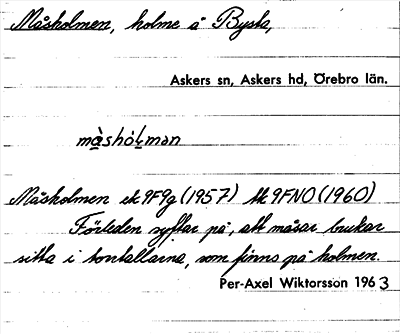 Måsholmen, holme å Bysta,
Askers sn, Askers hd, Örebro län.
må̀shól̥mən
Måsholmen ek 9F9g (1957) tk 9FNO (1960)
Förleden syftar på, att måsar brukar
sitta i torrtallarna, som finns på holmen.
Per-Axel Wiktorsson 1963